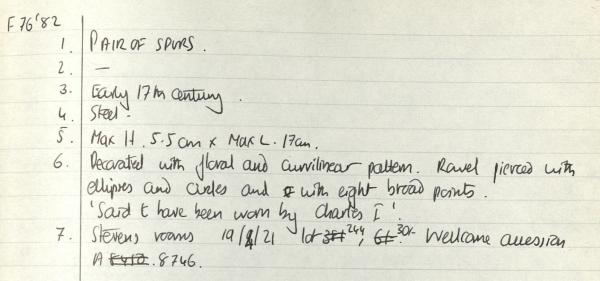 F 76'82
1. PAIR OF SPURS.
2. —
3. Early 17th century.
4. Steel.
5. Max H. 5.5cm x Max L. 17cm.
6. Decorated with floral and curvilinear pattern. Rowel pierced with
ellipses and circles and with eight broad points.
'Said t have been worn by Charles I'.
7. Stevens rooms 19/ /21 lot 244, 30/- Wellcome accession
A 8746.